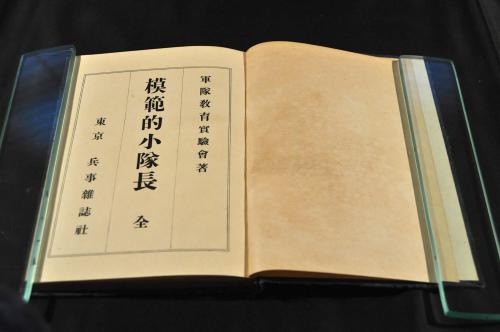 軍隊教育實驗會著
模範的小隊長 全
東京 兵事雜誌社